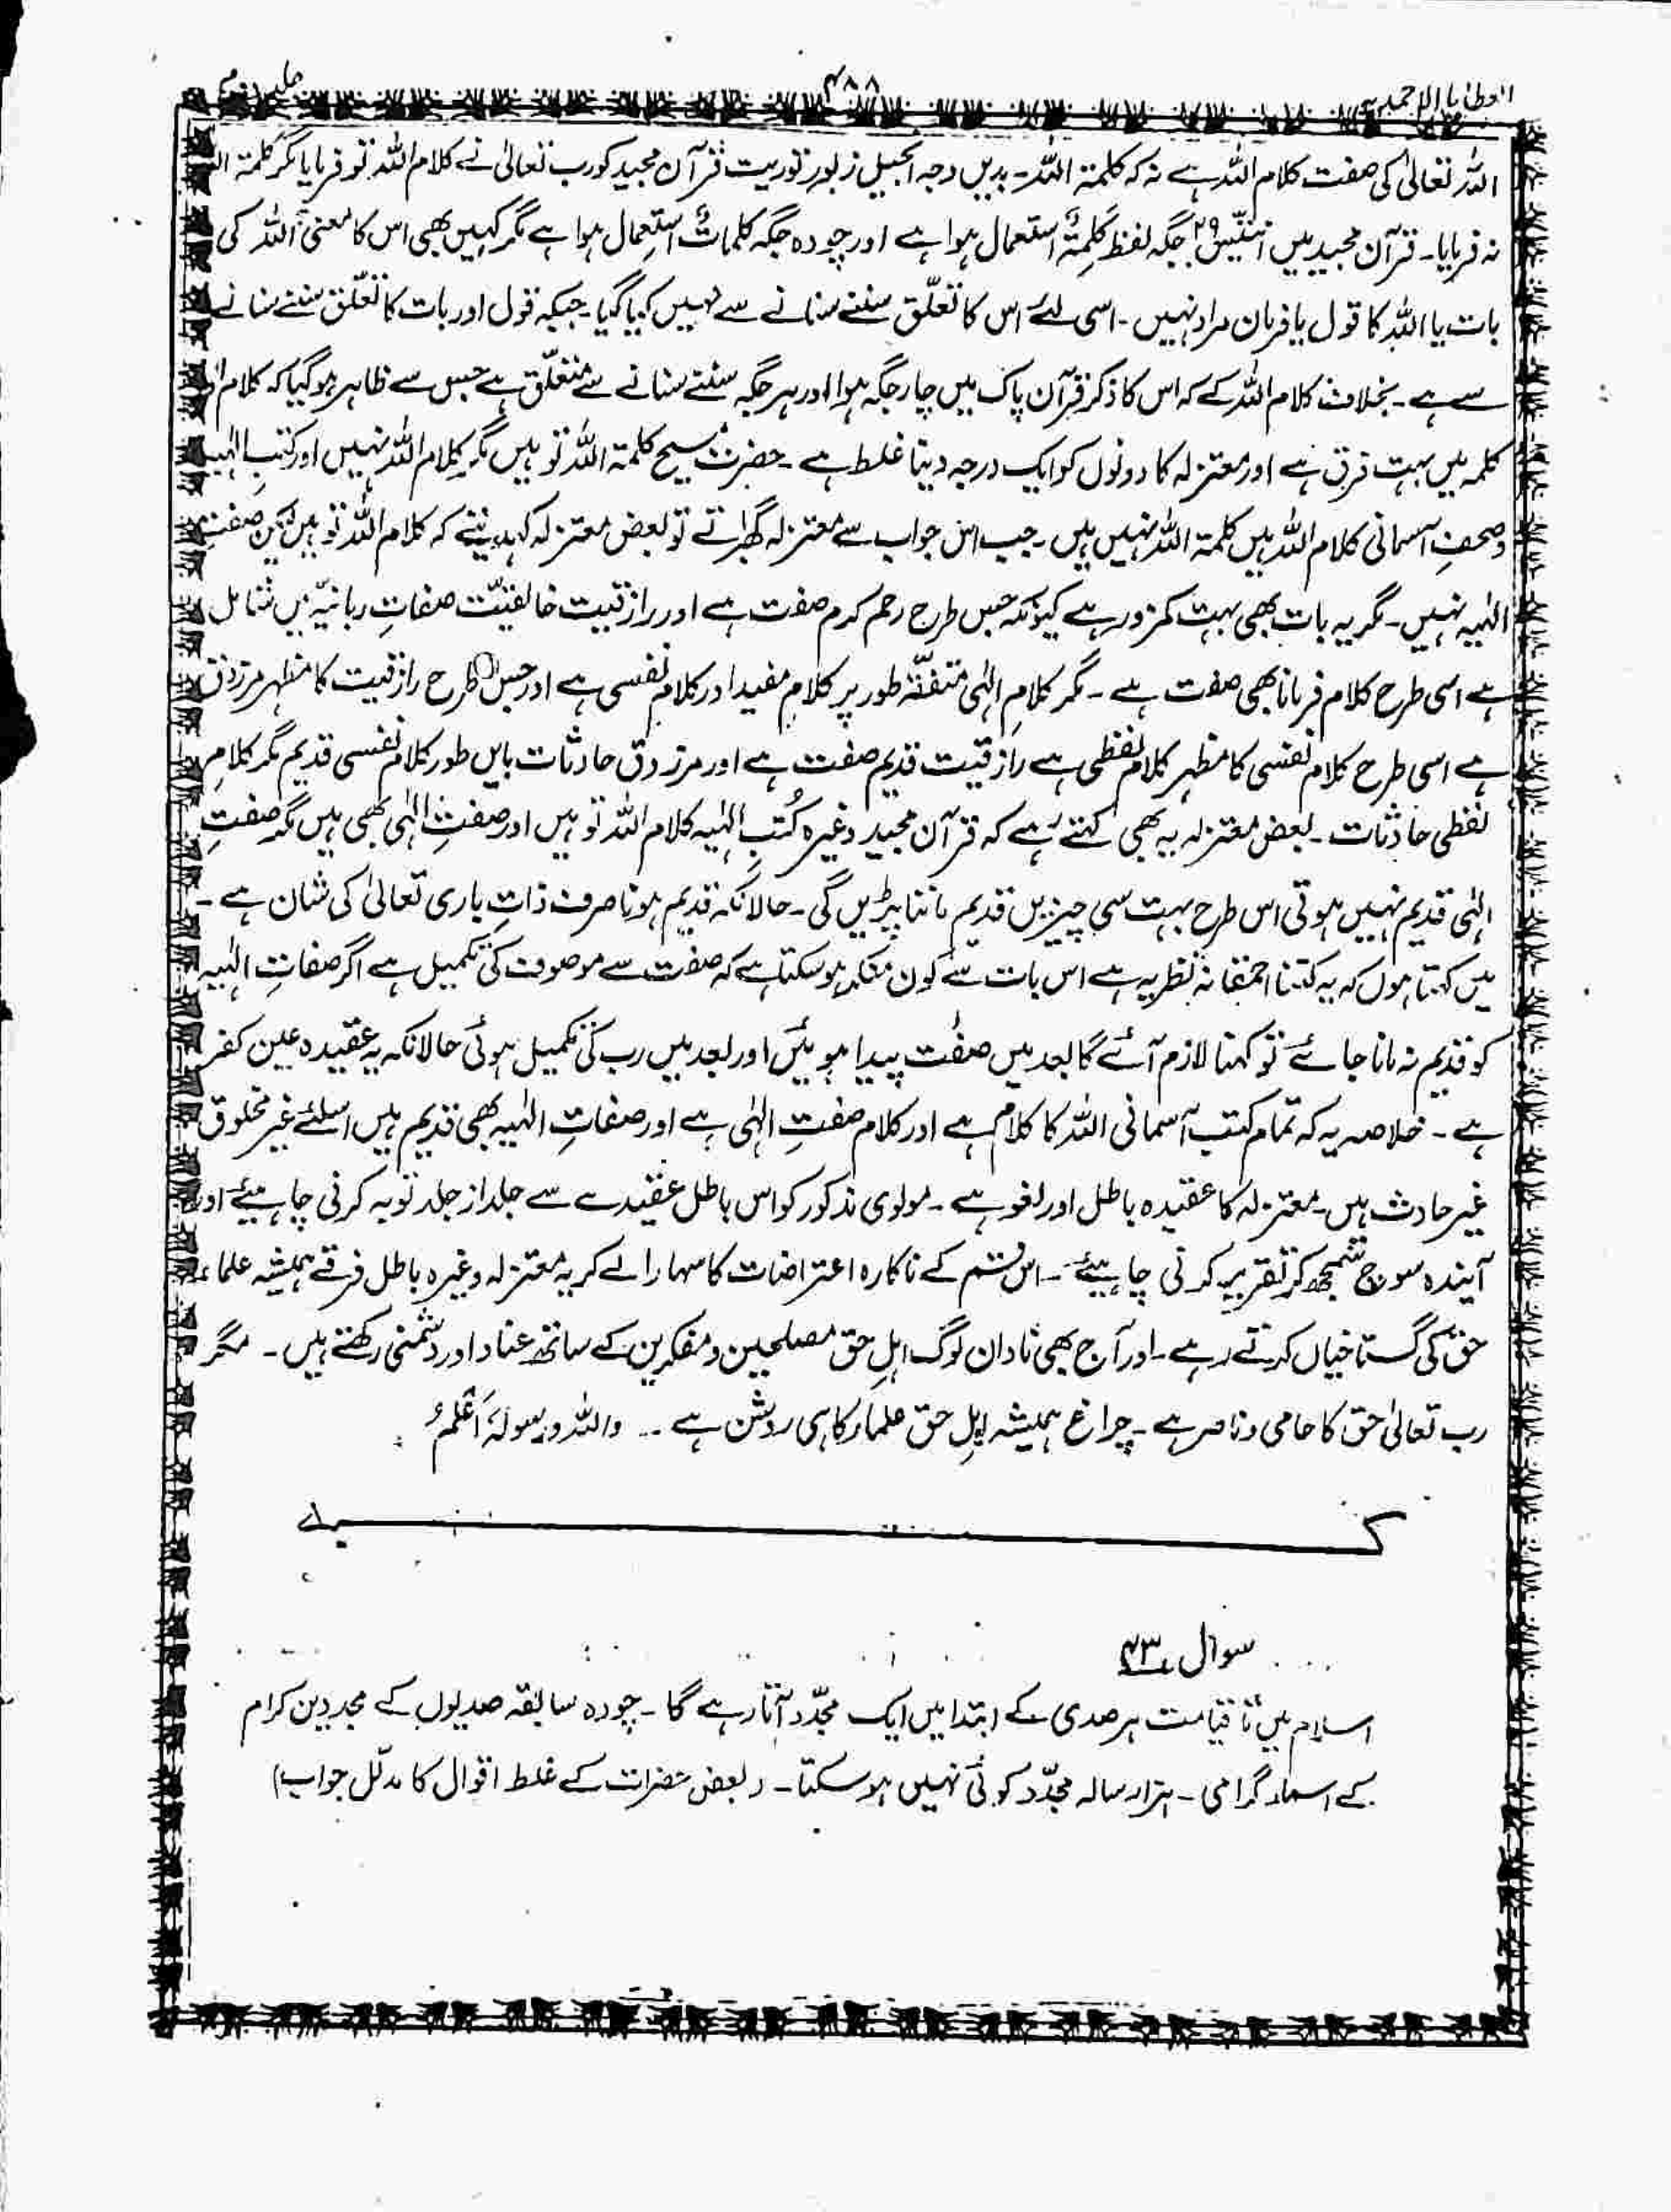 العطایا الاحمدیہ ۴۸۸ جلد دوم
اللہ تعالیٰ کی صفت کلام اللہ ہے نہ کہ کلمۃ اللہ۔ بدیں وجہ انجیل زبور توریت قرآن مجید کو رب تعالیٰ نے کلام اللہ تو فرمایا مگر کلمۃ اللہ
نہ فرمایا۔ قرآن مجید میں انتیس۲۹ جگہ لفظ کَلِمَۃُ استعمال ہوا ہے اور چودہ جگہ کلماتُ استعمال ہوا ہے مگر کہیں بھی اس کا معنیٰ اللہ کی
بات یا اللہ کا قول یا فرمان مراد نہیں۔ اسی لئے اس کا تعلّق سننے سنانے سے نہیں کیا گیا۔ جبکہ قول اور بات کا تعلّق سننے سنانے
سے ہے۔ بخلاف کلام اللہ کے کہ اس کا ذکر قرآن پاک میں چار جگہ ہوا اور ہر جگہ سننے سنانے سے متعلّق ہے جس سے ظاہر ہو گیا کہ کلام اور
کلمہ میں بہت فرق ہے اور معتزلہ کا دونوں کو ایک درجہ دینا غلط ہے۔ حضرت مسیح کلمۃ اللہ تو ہیں مگر کلام اللہ نہیں اور کتبِ الٰہیہ
و صحفِ آسمانی کلام اللہ ہیں کلمۃ اللہ نہیں ہیں۔ جب اس جواب سے معتزلہ گھبراتے تو بعض معتزلہ کہدیتے کہ کلام اللہ تو ہیں لیکن صفتِ
الٰہیہ نہیں۔ مگر یہ بات بھی بہت کمزور ہے کیونکہ جس طرح رحم کرم صفت ہے اور رازقیت خالقیّت صفاتِ ربانیّہ میں شامل
ہے اسی طرح کلام فرمانا بھی صفت ہے۔ مگر کلامِ الٰہی متفقہ طور پر کلامِ مفید اور کلامِ نفسی ہے اور جس طرح رازقیت کا مظہر مرزوق
ہے اسی طرح کلام نفسی کا مظہر کلام لفظی ہے رازقیت قدیم صفت ہے اور مرزوق حادثات بایں طور کلام نفسی قدیم مگر کلامِ
لفظی حادثات۔ بعض معتزلہ یہ بھی کہتے ہے کہ قرآن مجید وغیرہ کُتبِ الٰہیہ کلام اللہ تو ہیں اور صفتِ الٰہی بھی ہیں مگر صفتِ
الٰہی قدیم نہیں ہوتی اس طرح بہت سی چیزیں قدیم ماننا پڑیں گی۔ حالانکہ قدیم ہونا صرف ذاتِ باری تعالیٰ کی شان ہے۔
میں کہتا ہوں کہ یہ کتنا احمقانہ نظریہ ہے اس بات سے کون منکر ہو سکتا ہے کہ صفت سے موصوف کی تکمیل ہے اگر صفاتِ الٰہیہ
کو قدیم نہ مانا جائے تو کہنا لازم آئے گا بعد میں صفت پیدا ہوئیں اور بعد میں رب کی تکمیل ہوئی حالانکہ یہ عقیدہ عین کفر
ہے۔ خلاصہ یہ کہ تمام کتب آسمانی اللہ کا کلام ہے اور کلام صفتِ الٰہی ہے اور صفاتِ الٰہیہ بھی قدیم ہیں اسلئے غیر مخلوق
غیر حادث ہیں۔ معتزلہ کا عقیدہ باطل اور لغو ہے۔ مولوی مذکور کو اس باطل عقیدے سے جلد از جلد توبہ کرنی چاہیئے اور
آیندہ سوچ سمجھ کر تقریر کرنی چاہیئے۔ اس قسم کے ناکارہ اعتراضات کا سہارا لے کر یہ معتزلہ وغیرہ باطل فرقے ہمیشہ علماء
حق کی گستاخیاں کرتے رہے۔ اور آج بھی نادان لوگ اہلِ حق مصلحین و مفکرین کے ساتھ عناد اور دشمنی رکھتے ہیں۔ مگر
رب تعالیٰ حق کا حامی و ناصر ہے۔ چراغ ہمیشہ اہلِ حق علماء کا ہی روشن ہے۔ واللہ ورسولہٗ اَعْلَمُ
سوال ۴۳
اسلام میں تا قیامت ہر صدی کے ابتدا میں ایک مجدّد آتا رہے گا۔ چودہ سابقہ صدیوں کے مجددین کرام
کے اسماء گرامی۔ ہزار سالہ مجدّد کوئی نہیں ہو سکتا۔ (بعض حضرات کے غلط اقوال کا مدلّل جواب)